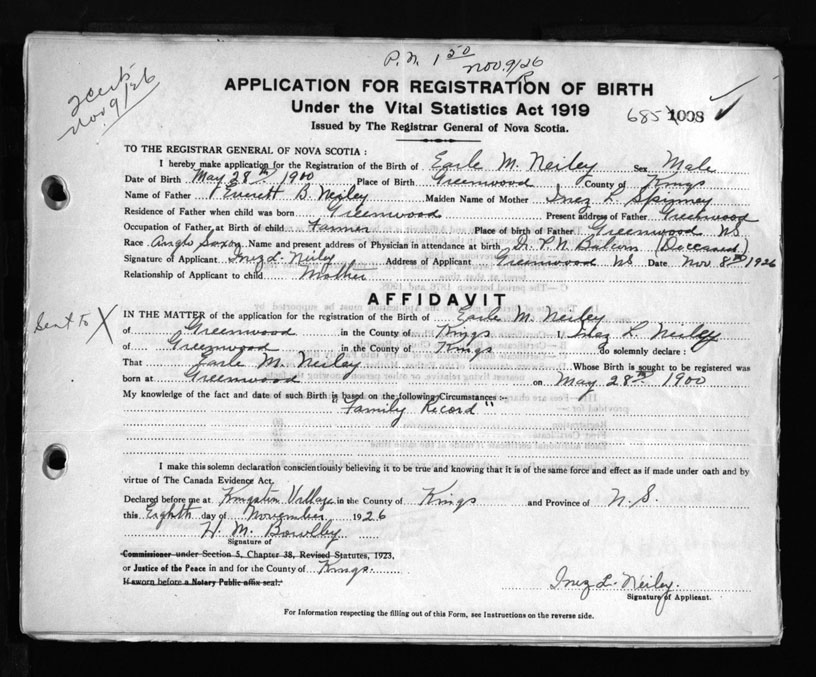 P.N. 1 50
Nov. 9/26
2 cert.
Nov 9/26
APPLICATION FOR REGISTRATION OF BIRTH
Under the Vital Statistics Act 1919
685 1008
Issued by The Registrar General of Nova Scotia.
TO THE REGISTRAR GENERAL OF NOVA SCOTIA :
I hereby make application for the Registration of the Birth of Earle M. Neiley Sex Male
Date of Birth May 28th 1900 Place of Birth Greenwood County of Kings
Name of Father Everett B. Neiley Maiden Name of Mother Inez L Spinney
Residence of Father when child was born Greenwood Present address of Father Greenwood
Occupation of Father at Birth of child Farmer Place of birth of Father Greenwood NS
Race Anglo Saxon Name and present address of Physician in attendance at birth Dr. P.N. Balcom (Deceased)
Signature of Applicant Inez L. Neily Address of Applicant Greenwood NS Date Nov 8th 1926
Relationship of Applicant to child Mother
AFFIDAVIT
Sent to X
IN THE MATTER of the application for the registration of Birth of Earle M. Neiley
of Greenwood in the County of Kings I, Inez L. Neiley
of Greenwood in the County of Kings do solemnly declare :
That Earle M. Neiley Whose Birth is sought to be registered was
born at Greenwood on May 28th 1900
My knowledge of the fact and date of such Birth is based on the following Circumstances :-
"Family Record"
I make this solemn declaration conscientiously believing it to be true and knowing that it is of the same force and effect as if made under oath and by
virtue of The Canada Evidence Act.
Declared before me at Kingston Village in the County of Kings and Province of N.S.
this Eighth day of November 1926
H. M. Bowlby
Signature of
Commissioner under Section 5, Chapter 38, Revised Statutes, 1923,
or Justice of the Peace in and for the County of Kings.
If sworn before a Notary Public affix seal.
Inez L. Neiley.
Signature of Applicant.
For Information respecting the filling out of this Form, see Instructions on the reverse side.